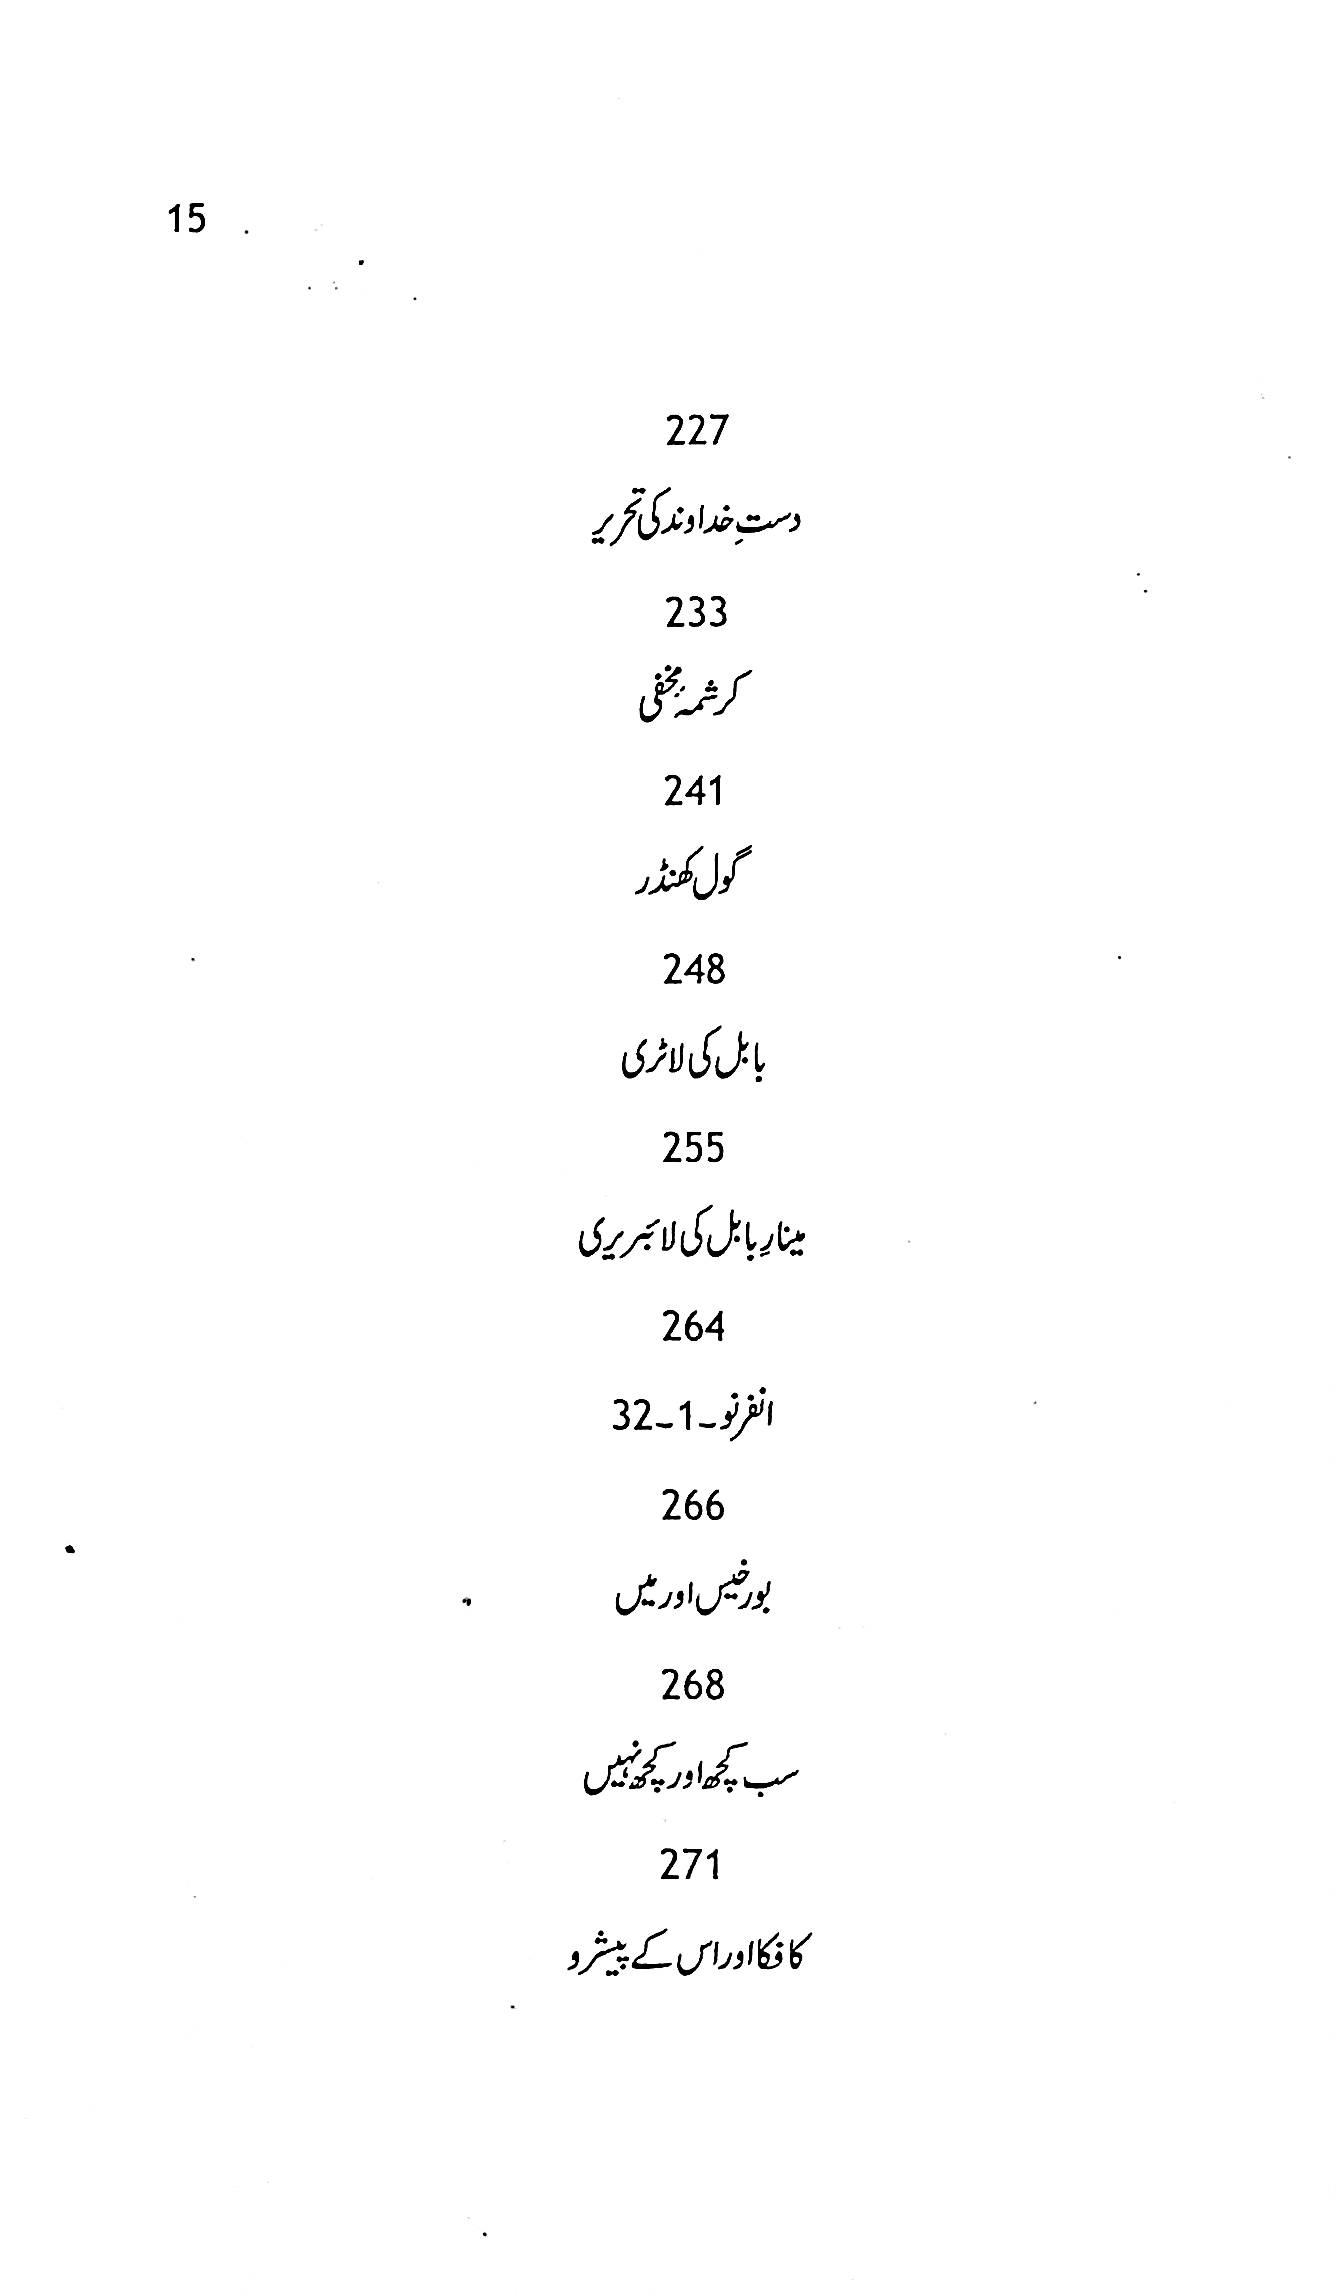 15
227
دستِ خداوند کی تحریر
233
کرشمۂ مخفی
241
گول کھنڈر
248
بابل کی لاٹری
255
مینارِ بابل کی لائبریری
264
انفرنو۔1۔32
266
بورخیس اور میں
268
سب کچھ اور کچھ نہیں
271
کافکا اور اس کے پیشرو